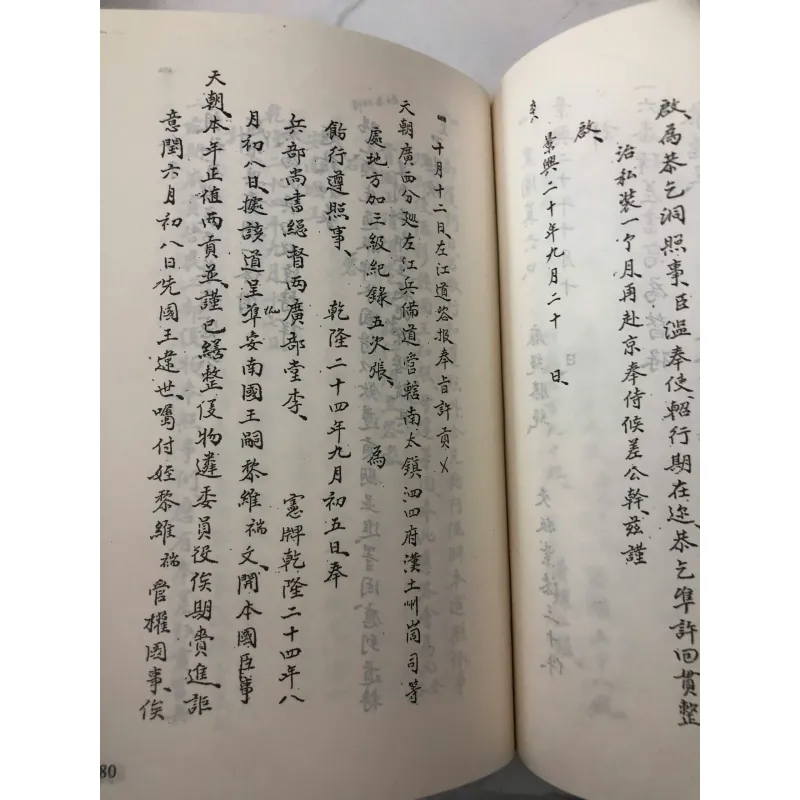 啟爲恭乞洞照事臣濫奉使軺行期在邇恭乞準許回貫整
治私裝一个月再赴京奉侍候差公幹茲謹
啟
景興二十年九月二十 日
一十月十二日左江道咨报奉旨許貢
天朝廣西分廵左江兵備道管轄南太鎮泗四府漢土州峝司等
處地方加三級紀錄五次張 為
飭行遵照事 乾隆二十四年九月初五日奉
兵部尚書總督两廣部堂李 憲牌乾隆二十四年八
月初八日據該道呈准安南國王嗣黎維𥚃文開本國臣事
天朝本年正值两貢並謹已繕整侵物遴委員役俟期賫進詎
意閏六月初八日先國王違世囑付姪黎維𥚃管權國事俟
80